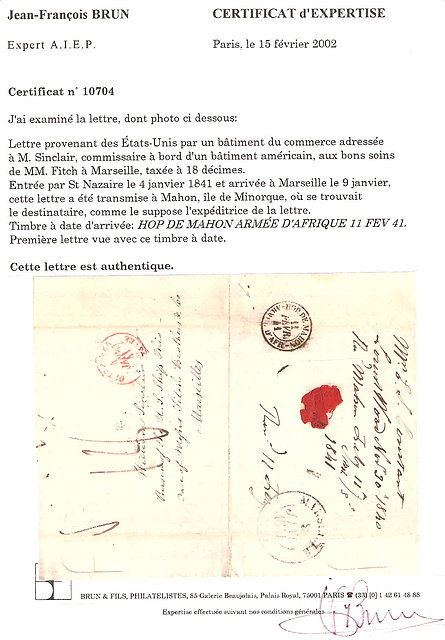 Jean-François BRUN
CERTIFICAT d'EXPERTISE
Expert A.I.E.P.
Paris, le 15 février 2002
Certificat n° 10704
J'ai examiné la lettre, dont photo ci dessous:
Lettre provenant des États-Unis par un bâtiment du commerce adressée
à M. Sinclair, commissaire à bord d'un bâtiment américain, aux bons soins
de MM. Fitch à Marseille, taxée à 18 décimes.
Entrée par St Nazaire le 4 janvier 1841 et arrivée à Marseille le 9 janvier,
cette lettre a été transmise à Mahon, île de Minorque, où se trouvait
le destinataire, comme le suppose l'expéditrice de la lettre.
Timbre à date d'arrivée: HOP DE MAHON ARMÉE D'AFRIQUE 11 FEV 41.
Première lettre vue avec ce timbre à date.
Cette lettre est authentique.
William Sinclair
Purser of the U.S. Ship
care of Messrs Fitch Brothers & Co
Marseilles
Locust Wood Nov 30 1840
Mahon Feby 11th
1841
BRUN & FILS, PHILATELISTES, 85 Galerie Beaujolais, Palais Royal, 75001 PARIS ☎ (33) (0) 1 42 61 48 88
Expertise effectuée suivant nos conditions générales